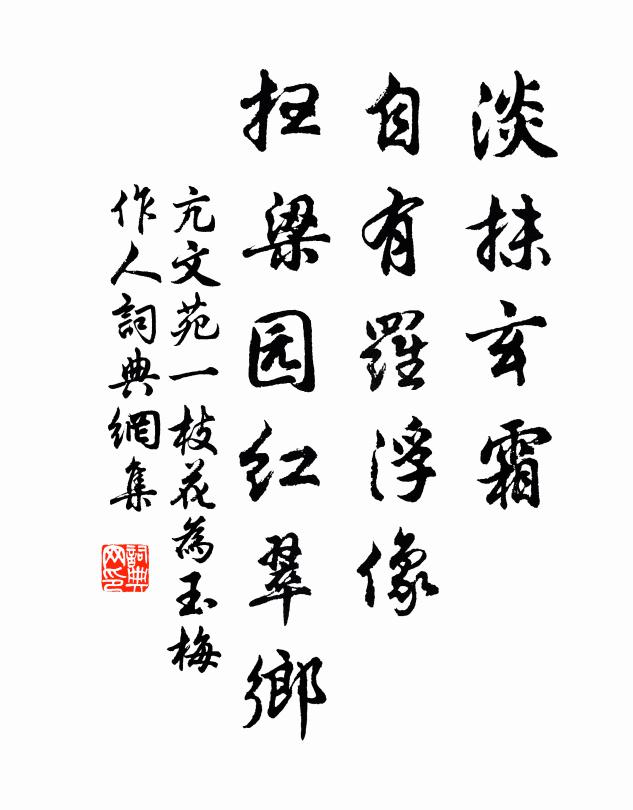 淡抹玄霜
自有羅浮像
扭梁园红翠鄉
亢文苑一枝花為玉梅
作人詞典網集
詞典
网印